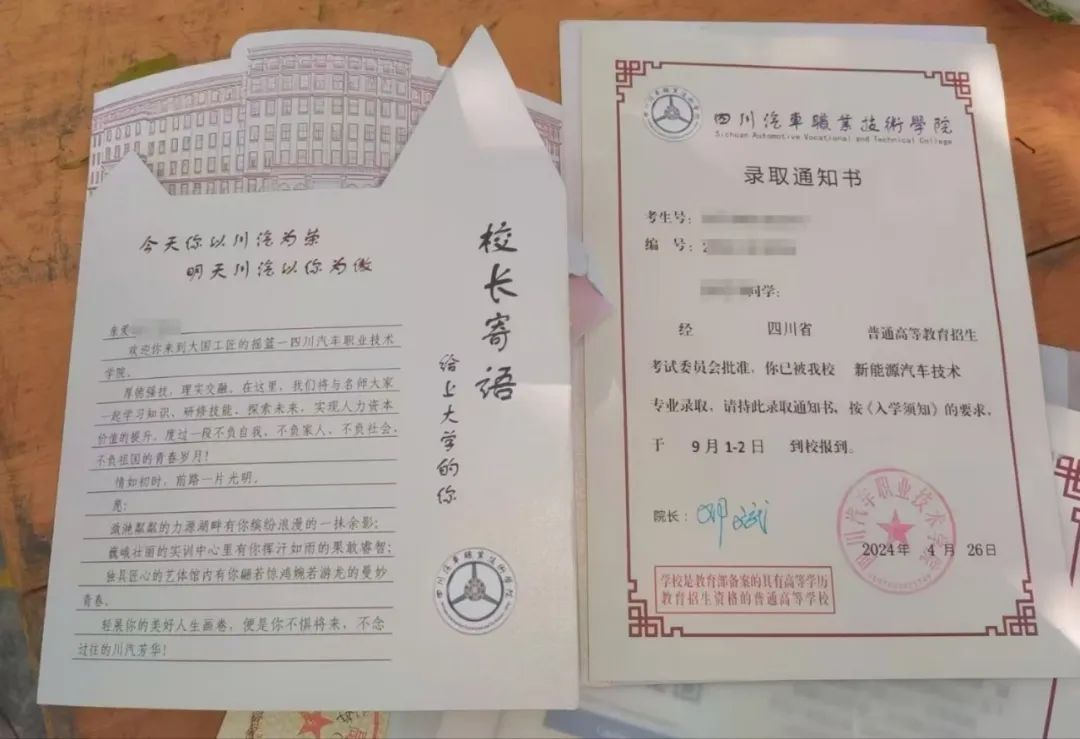 今天你以川汽为荣
明天川汽以你为傲
校长寄语
给上大学的你
亲爱
欢迎你来到大国工匠的摇篮—四川汽车职业技术
学院。
厚德强技，理实交融。在这里，我们将与名师大家
一起学习知识、研修技能、探索未来，实现人力资本
价值的提升，度过一段不负自我、不负家人、不负社会、
不负祖国的青春岁月！
情如初时，前路一片光明。
愿：
潋滟粼粼的力源湖畔有你缤纷浪漫的一抹余影；
巍峨壮丽的实训中心里有你挥汗如雨的果敢睿智；
独具匠心的艺体馆内有你翩若惊鸿婉若游龙的曼妙
青春。
轻展你的美好人生画卷，便是你不惧将来，不念
过往的川汽芳华！
四川汽車職業技術學院
四川汽車職業技術學院
Sichuan Automotive Vocational and Technical College
录取通知书
考生号：
编 号：2
同学：
经 四川省 普通高等教育招生
考试委员会批准，你已被我校 新能源汽车技术
专业录取，请持此录取通知书，按《入学须知》的要求，
于 9月1-2日 到校报到。
院长：
四川汽车职业技术学院
2024年 4月 26日
学校是教育部备案的具有高等学历
教育招生资格的普通高等学校